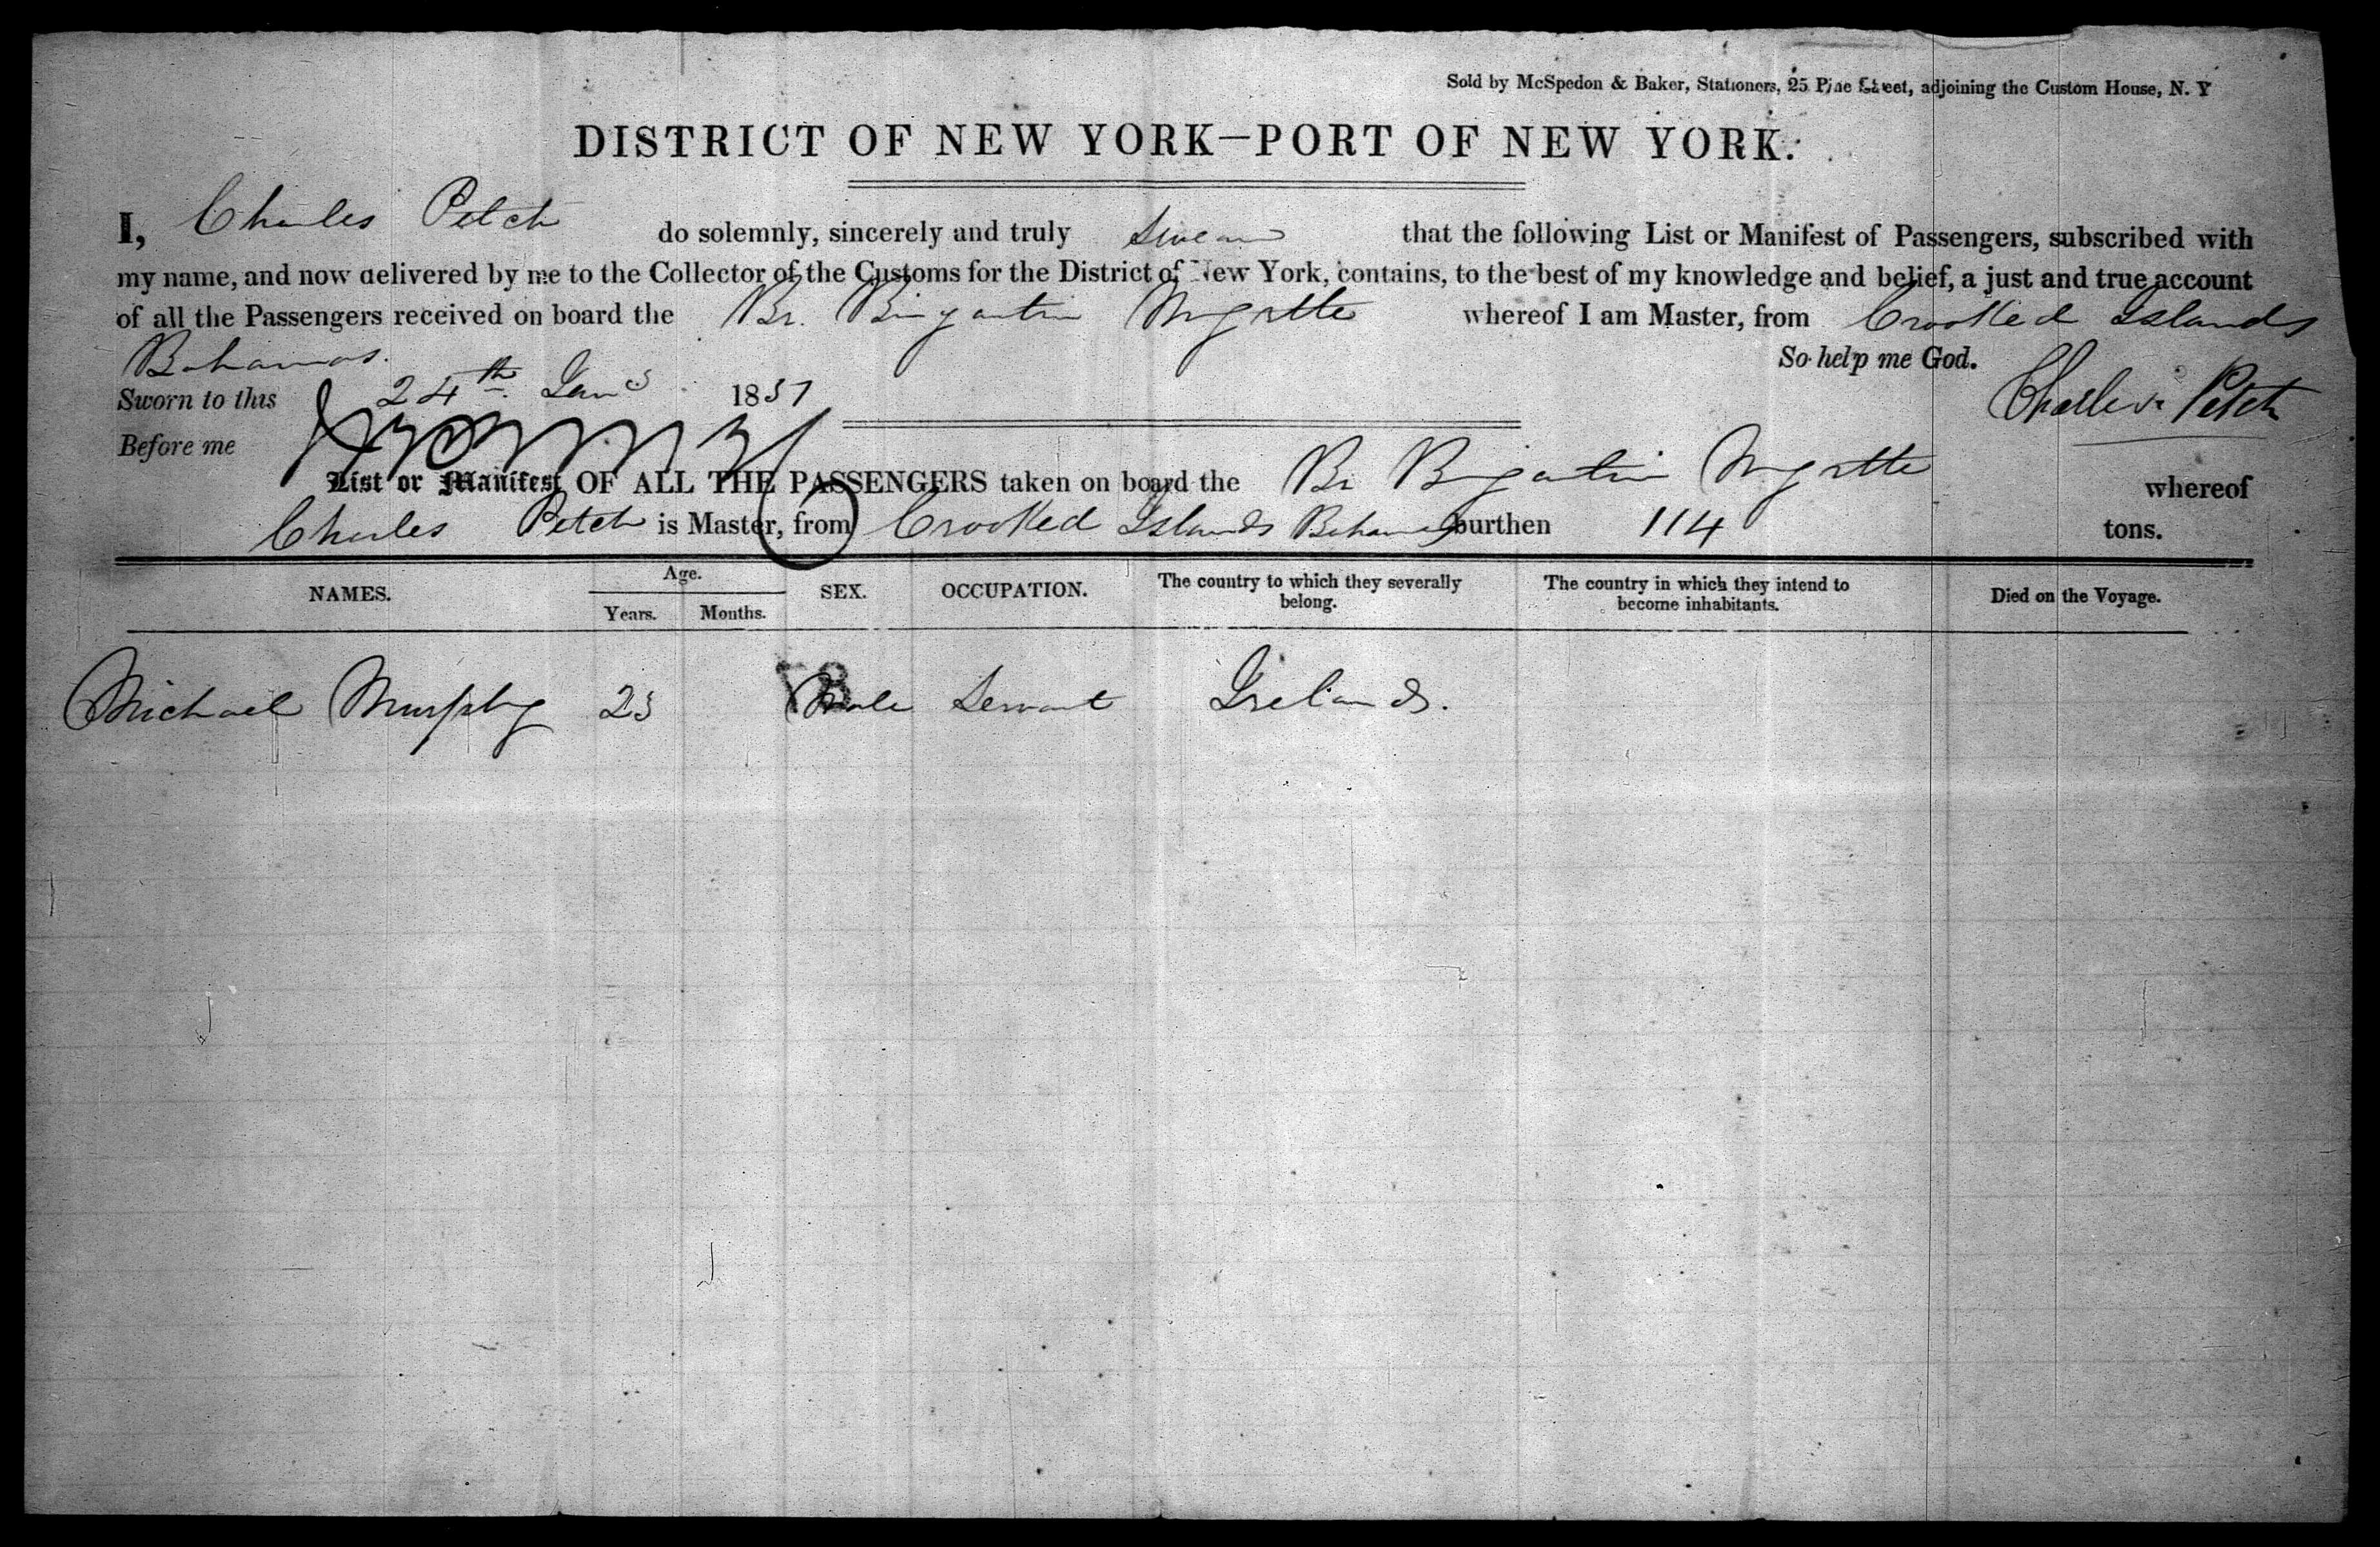 Sold by McSpedon & Baker, Stationers, 25 Pine Street, adjoining the Custom House, N. Y
DISTRICT OF NEW YORK—PORT OF NEW YORK.
I, Charles Petch do solemnly, sincerely and truly swear that the following List or Manifest of Passengers, subscribed with
my name, and now delivered by me to the Collector of the Customs for the District of New York, contains, to the best of my knowledge and belief, a just and true account
of all the Passengers received on board the Br. Brigantin Myrtle whereof I am Master, from Crooked Islands
Bahamas. So help me God.
Sworn to this 24th Jany 1851 Charles Petch
Before me
List or Manifest OF ALL THE PASSENGERS taken on board the Br Brigantin Myrtle whereof
Charles Petch is Master, from Crooked Islands Bahamas burthen 114 tons.
NAMES. Age. SEX. OCCUPATION. The country to which they severally belong. The country in which they intend to become inhabitants. Died on the Voyage.
Years. Months.
Michael Murphy 23 Male Servant Ireland.